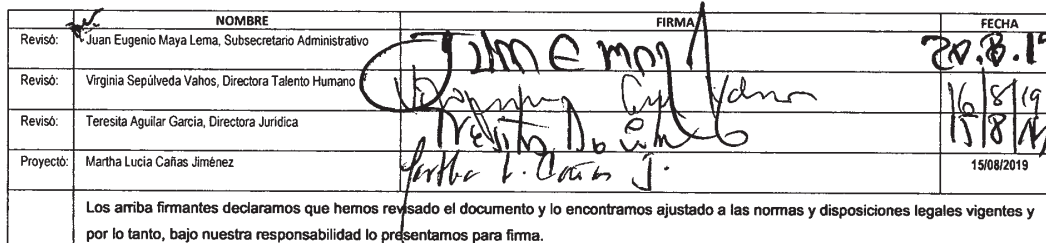 NOMBRE FIRMA FECHA
Revisó: Juan Eugenio Maya Lema, Subsecretario Administrativo 20.8.19
Revisó: Virginia Sepúlveda Vahos, Directora Talento Humano 16/8/19
Revisó: Teresita Aguilar García, Directora Jurídica
Proyectó: Martha Lucía Cañas Jiménez Martha L. Cañas J. 15/08/2019
Los arriba firmantes declaramos que hemos revisado el documento y lo encontramos ajustado a las normas y disposiciones legales vigentes y
por lo tanto, bajo nuestra responsabilidad lo presentamos para firma.